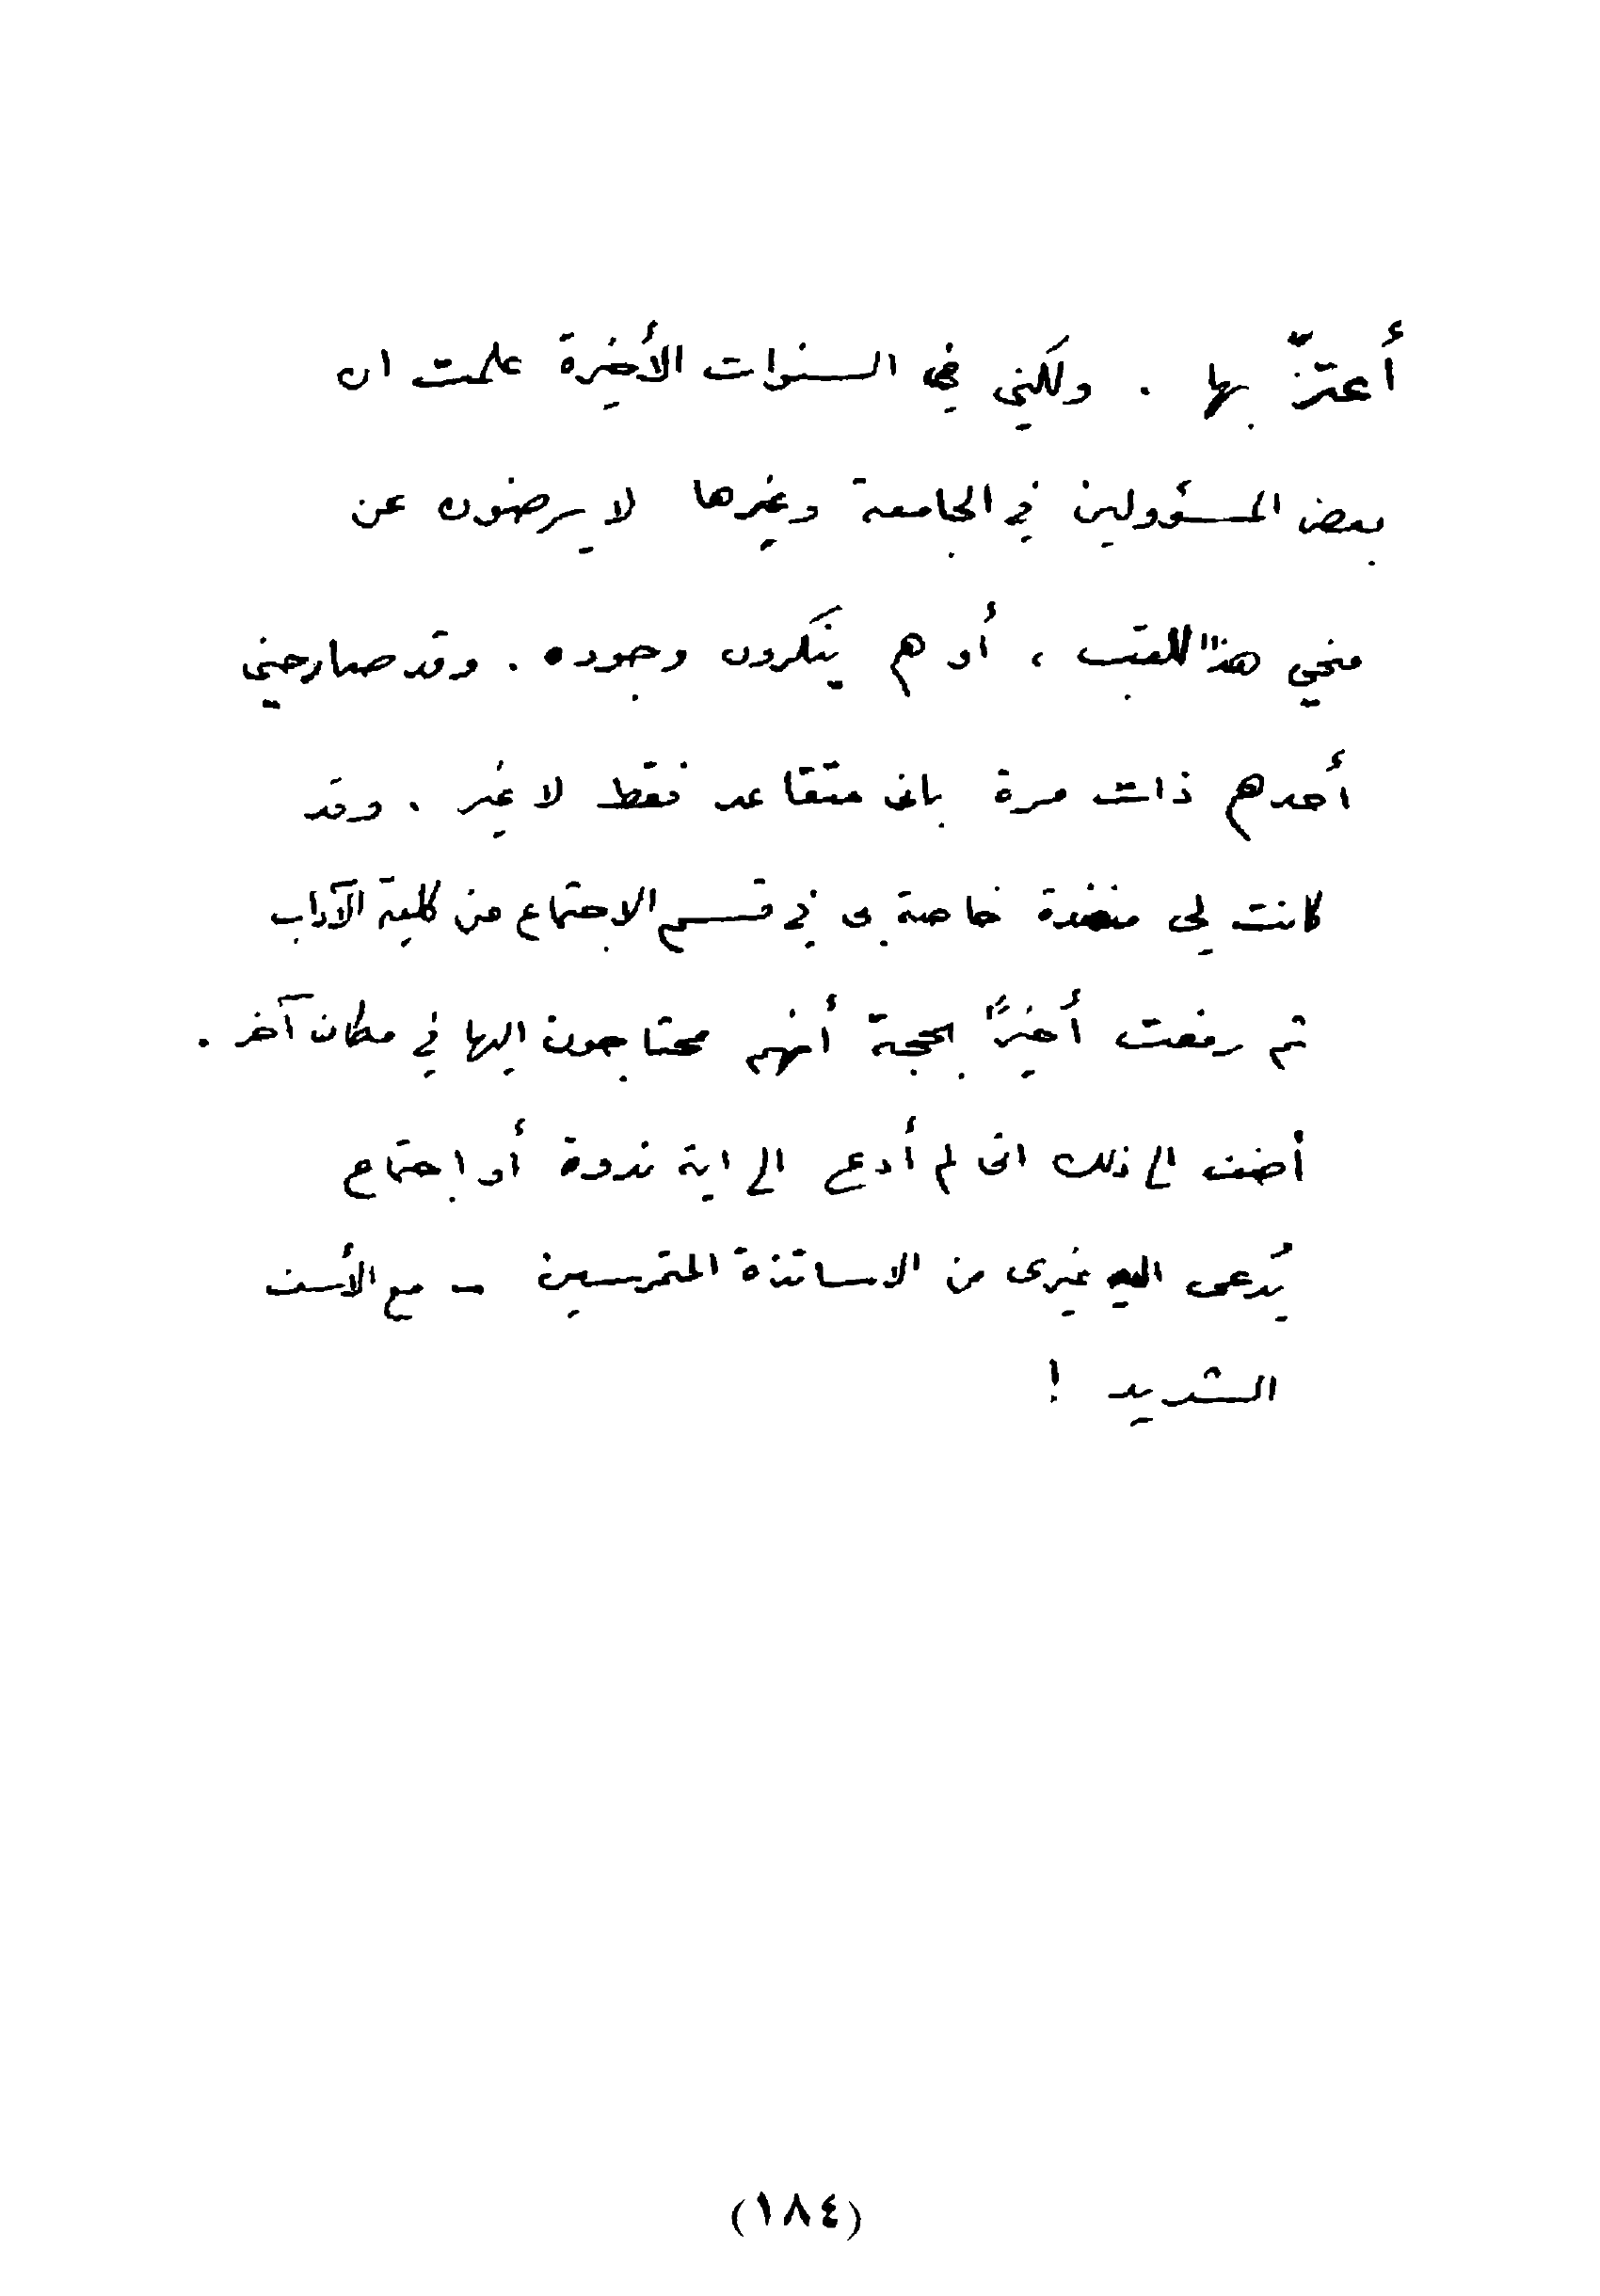 أعتزّ بها . ولكني في السنوات الأخيرة علمت ان
بعض المسؤولين في الجامعة وغيرها لا يرضون عن
منحي هذا اللقب ، أو هم ينكرون وجوده . وقد صارحني
أحدهم ذات مرة باني متقاعد فقط لا غير . وقد
كانت لي منضدة خاصة بي في قسم الاجتماع من كلية الآداب
ثم رفعت أخيراً بحجة أنهم محتاجون اليها في مكان آخر .
أضف الى ذلك انى لم أدع الى اية ندوة أو اجتماع
يُدعى اليه غيرى من الاساتذة المتمرسين – مع الأسف
الشديد !
(١٨٤)